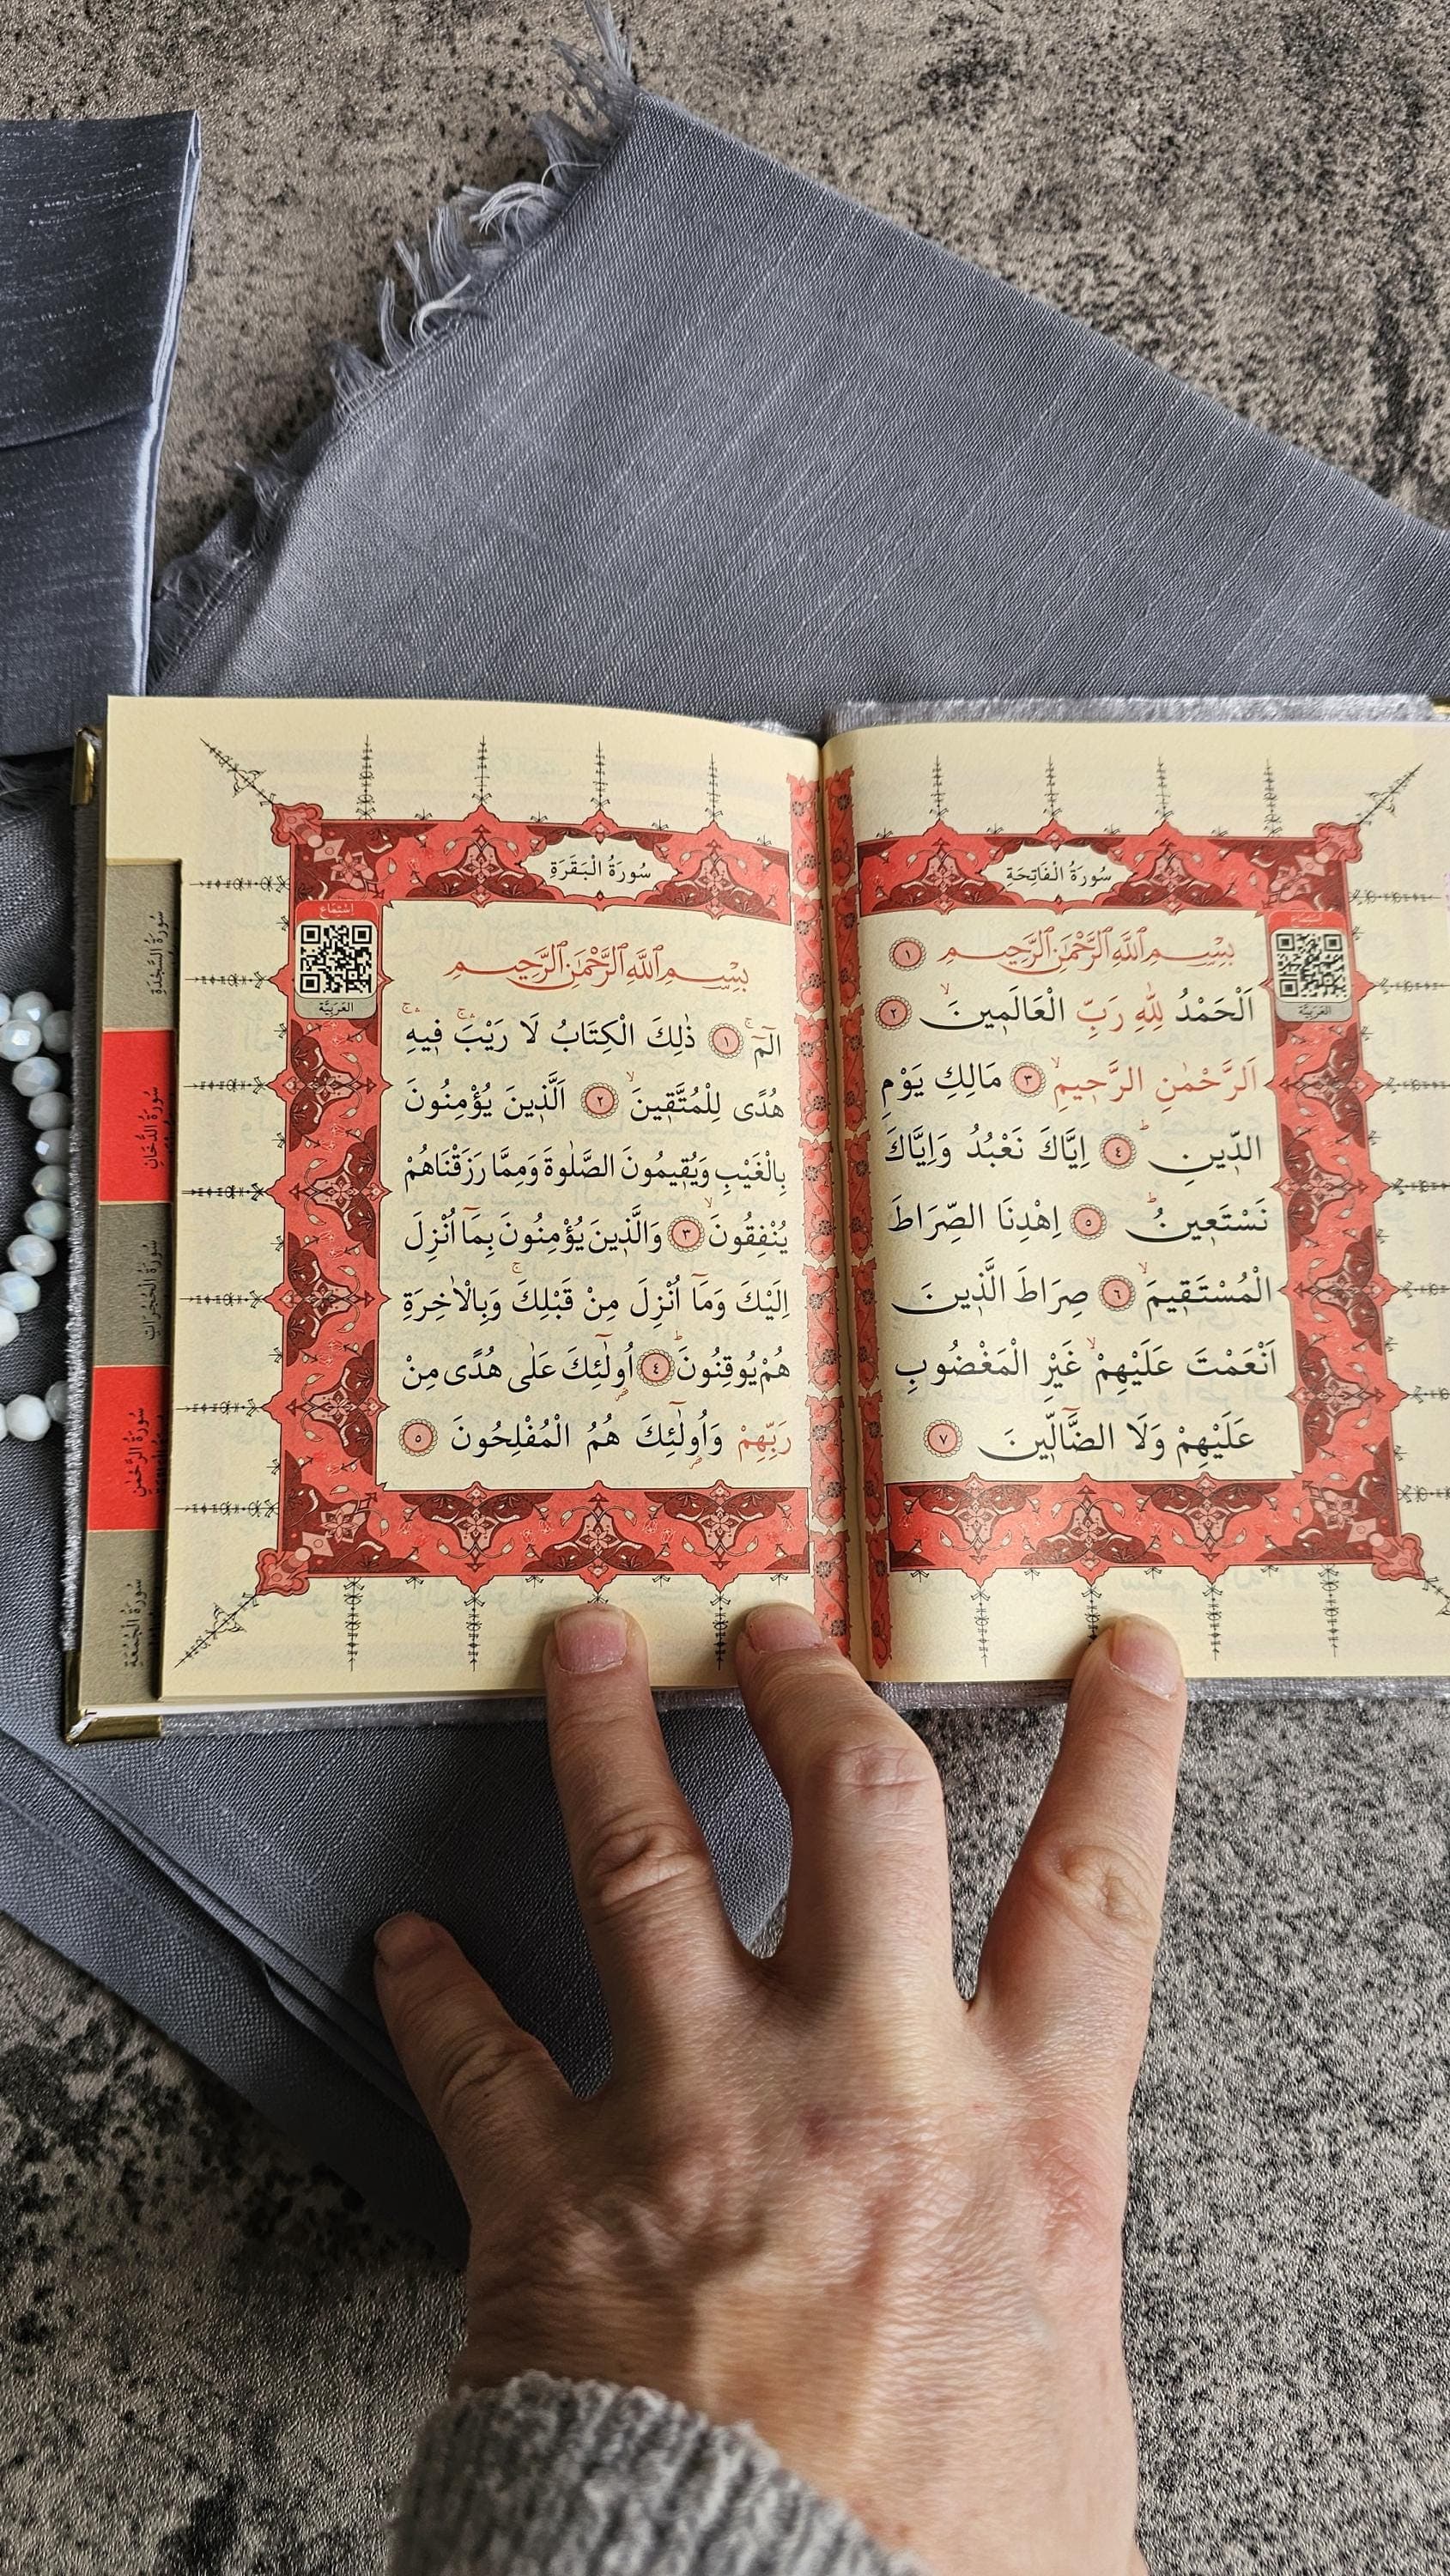 سُورَةُ الْفَاتِحَةِ
اِسْتِمَاع
الْعَرَبِيَّة
بِسْمِ اللّٰهِ الرَّحْمٰنِ الرَّحِيمِ ١
اَلْحَمْدُ لِلّٰهِ رَبِّ الْعَالَمِينَۙ ٢
اَلرَّحْمٰنِ الرَّحِيمِۙ ٣ مَالِكِ يَوْمِ
الدِّينِۜ ٤ اِيَّاكَ نَعْبُدُ وَاِيَّاكَ
نَسْتَعِينُۜ ٥ اِهْدِنَا الصِّرَاطَ
الْمُسْتَقِيمَۙ ٦ صِرَاطَ الَّذِينَ
اَنْعَمْتَ عَلَيْهِمْۙ غَيْرِ الْمَغْضُوبِ
عَلَيْهِمْ وَلَا الضَّٓالِّينَ ٧
سُورَةُ الْبَقَرَةِ
اِسْتِمَاع
الْعَرَبِيَّة
بِسْمِ اللّٰهِ الرَّحْمٰنِ الرَّحِيمِ
الٓمٓۚ ١ ذٰلِكَ الْكِتَابُ لَا رَيْبَۚۛ فِيهِۚۛ
هُدًى لِلْمُتَّقِينَۙ ٢ اَلَّذِينَ يُؤْمِنُونَ
بِالْغَيْبِ وَيُقِيمُونَ الصَّلٰوةَ وَمِمَّا رَزَقْنَاهُمْ
يُنْفِقُونَۙ ٣ وَالَّذِينَ يُؤْمِنُونَ بِمَٓا اُنْزِلَ
اِلَيْكَ وَمَٓا اُنْزِلَ مِنْ قَبْلِكَۚ وَبِالْاٰخِرَةِ
هُمْ يُوقِنُونَۜ ٤ اُو۬لٰٓئِكَ عَلٰى هُدًى مِنْ
رَبِّهِمْ وَاُو۬لٰٓئِكَ هُمُ الْمُفْلِحُونَ ٥
سُورَةُ السَّجْدَةِ
سُورَةُ الدُّخَانِ
سُورَةُ الْحُجُرَاتِ
سُورَةُ الرَّحْمٰنِ
سُورَةُ الْجُمُعَةِ